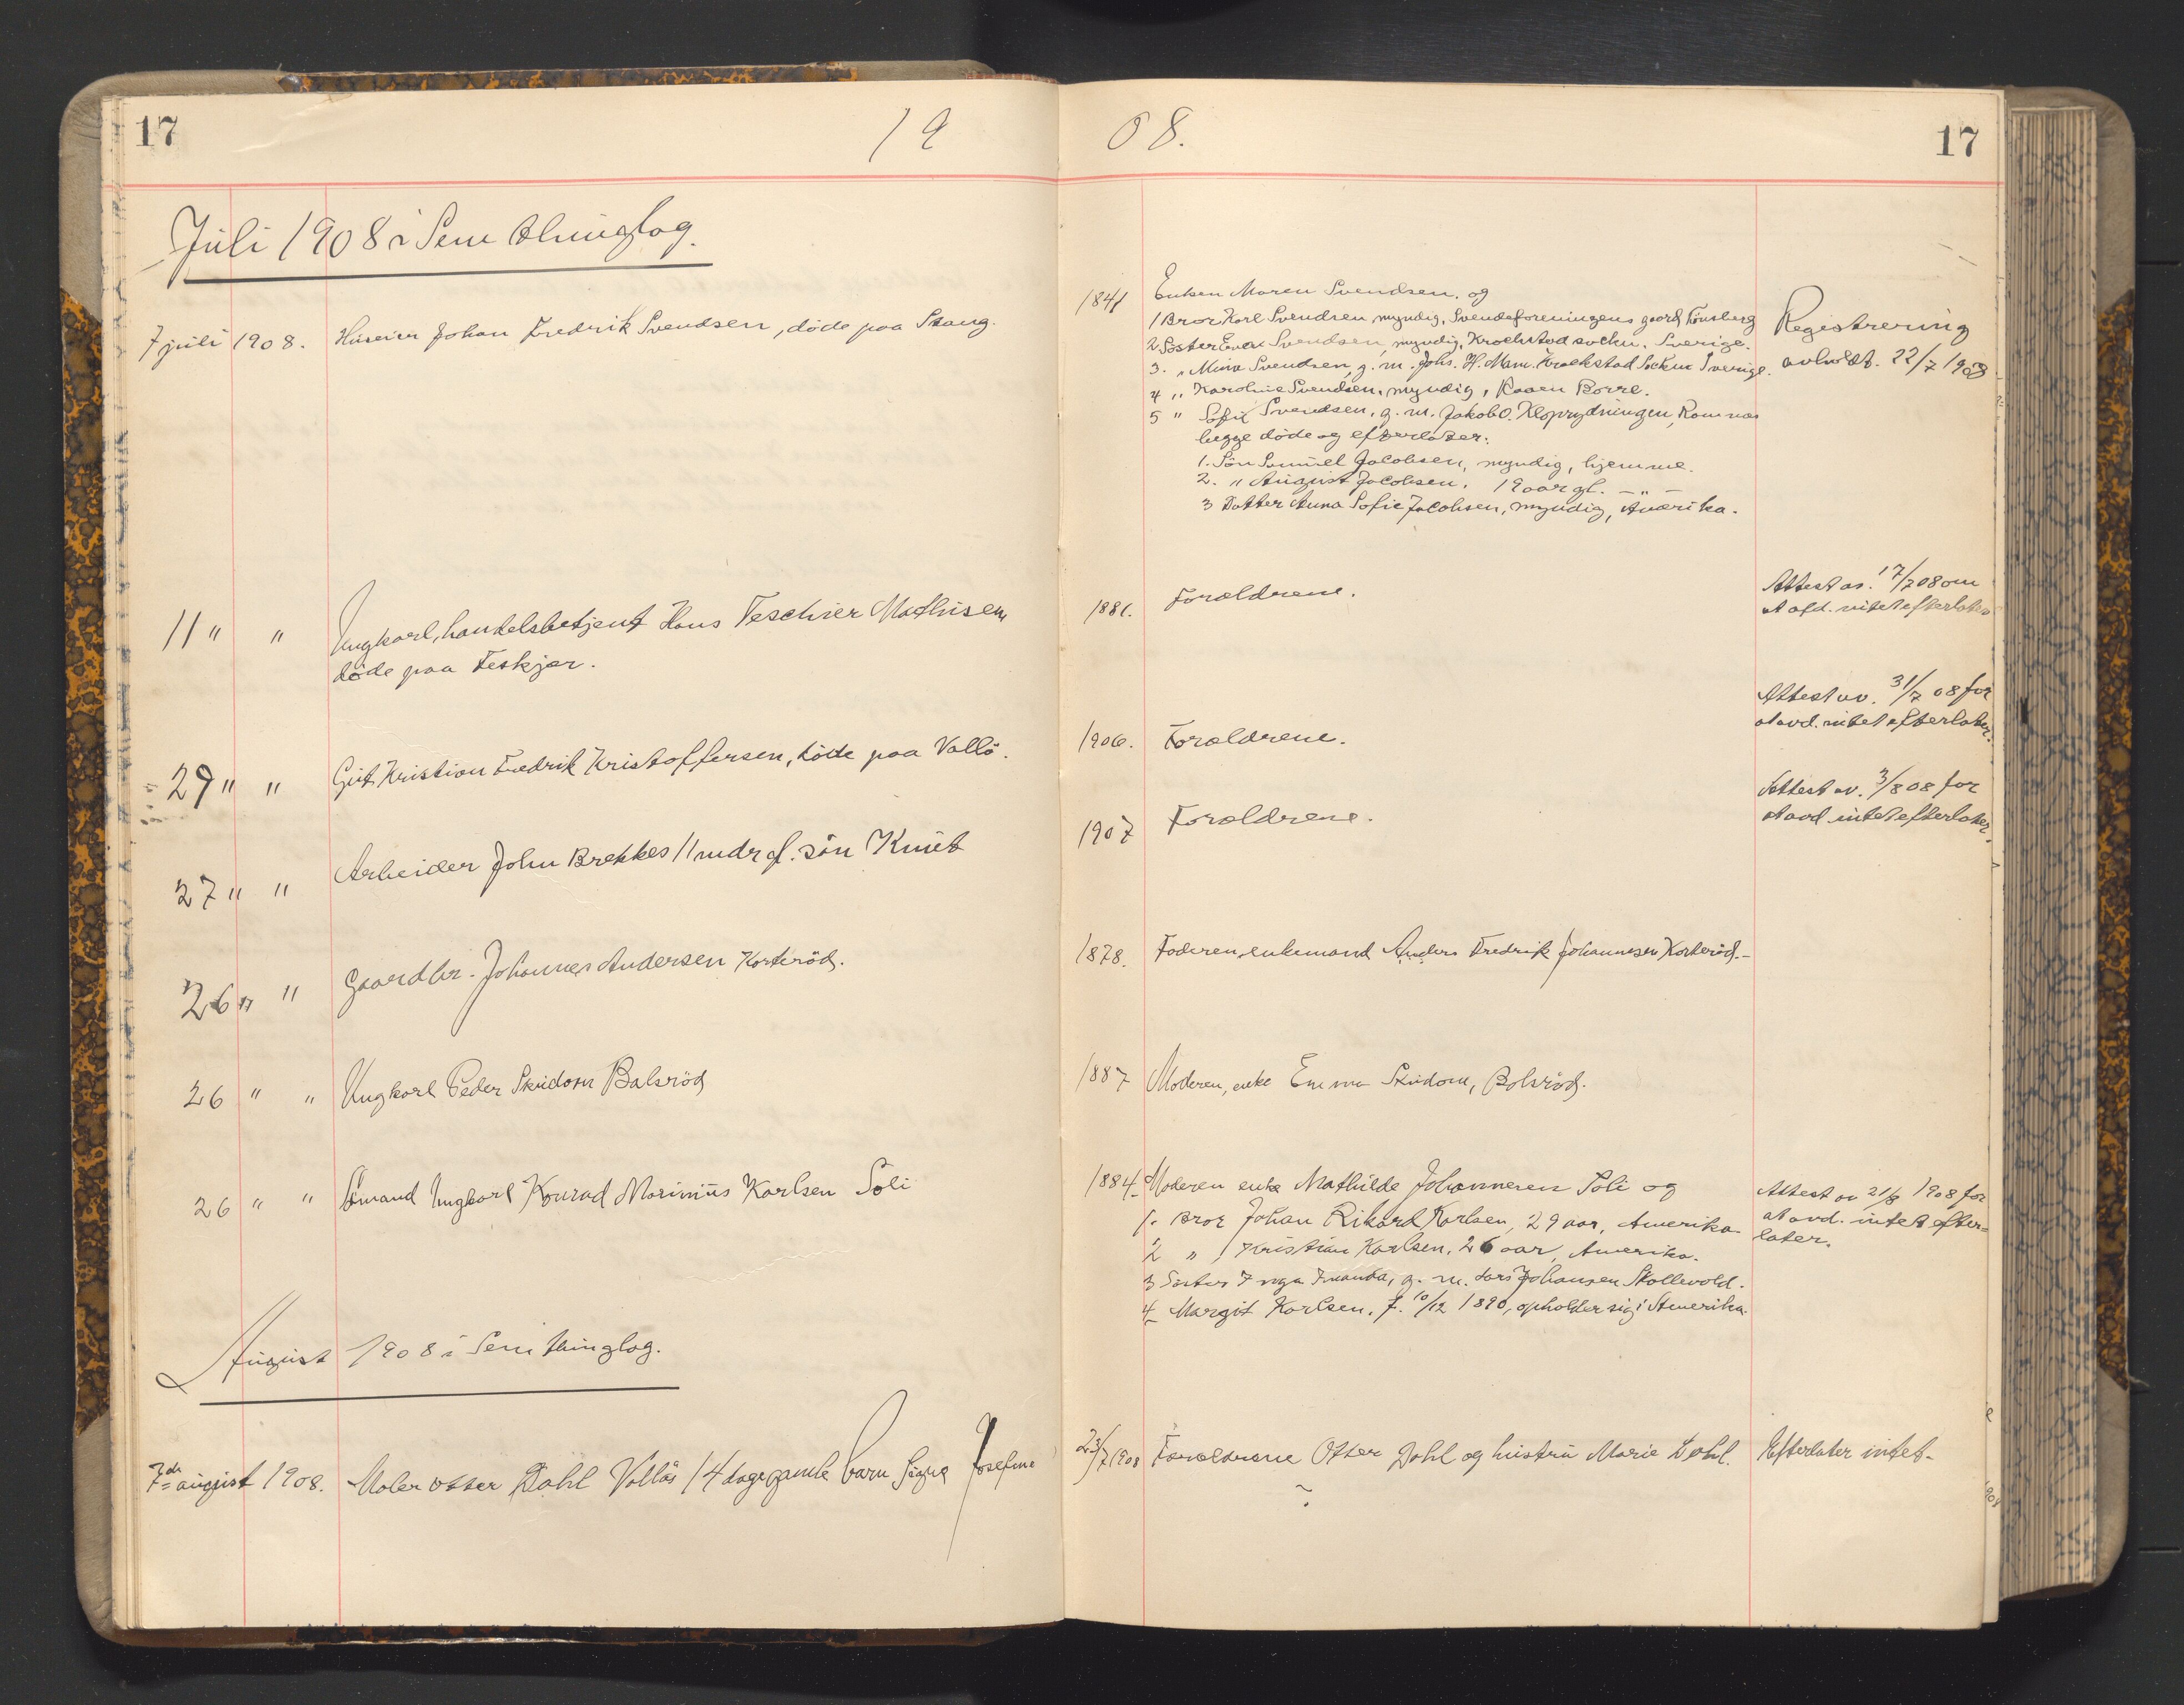 17
19
08.
17
Juli 1908 i Sem thinglag.
7 juli 1908. Huseier Johan Fredrik Svendsen, døde paa Stang.
1841 Enken Maren Svendsen. og
1 Bror Karl Svendsen myndig, Svendeforeningens gaard Tönsberg
2. Söster Svendsen, myndig, Krockstad sockn. Sverige.
3. " Mina Svendsen, g. m. Johs. H. Krockstad Sockn Sverige.
4 " Karoline Svendsen, myndig, Kaaen Borre.
5 " Sofie Svendsen, g. m. Jakob O. Ramnes
begge døde og efterlater:
1. Sön Samuel Jacobsen, myndig, hjemme.
2. " August Jacobsen. 19 aar gl. — " —
3 Datter Anna Sofie Jacobsen, myndig, Amerika.
Registrering
avholdt. 22/7 1908
11 " " Ungkarl, handelsbetjent Hans Teschier Mathisen
døde paa Teskjær.
1881. Forældrene.
Attest av. 17/7 08 om
at afd. intet efterlater
29 " " Gut Kristian Fredrik Kristoffersen, døde paa Vallö.
1906. Forældrene.
Attest av. 31/7 08 for
at avd. intet efterlater.
27 " " Arbeider John Brekkes 11 mdr gl. sön Knut
1907 Forældrene.
Attest av. 3/8 08 for
at avd intet efterlater.
26 " " Gaardbr. Johannes Andersen Korterød.
1878. Faderen, enkemand Anders Fredrik Johannesen Korterød.-
26 " " Ungkarl Peder Skidom Balsröd
1887 Moderen, enke Emma Skidom, Bolsröd.
26 " " Sömand Ungkarl Konrad Marinius Karlsen Soli
1884. Moderen enke Mathilde Johannesen Soli og
1. Bror Johan Rikard Karlsen, 29 aar, Amerika
2 " Kristian Karlsen, 26 aar, Amerika.
3 Søster Inga Amanda, g. m. Lars Johansen Skollevold.
4 Margit Karlsen, f. 10/12 1890, opholder sig i Amerika.
Attest av 21/8 1908 for
at avd. intet efter=
later.
August 1908 i Sem thinglag.
7de august 1908. Maler Otter Dahl Vallös 14 dage gamle barn Signe Josefine
23/7 1908 Forældrene Otter Dahl og hustru Marie Dahl.
Efterlater intet.